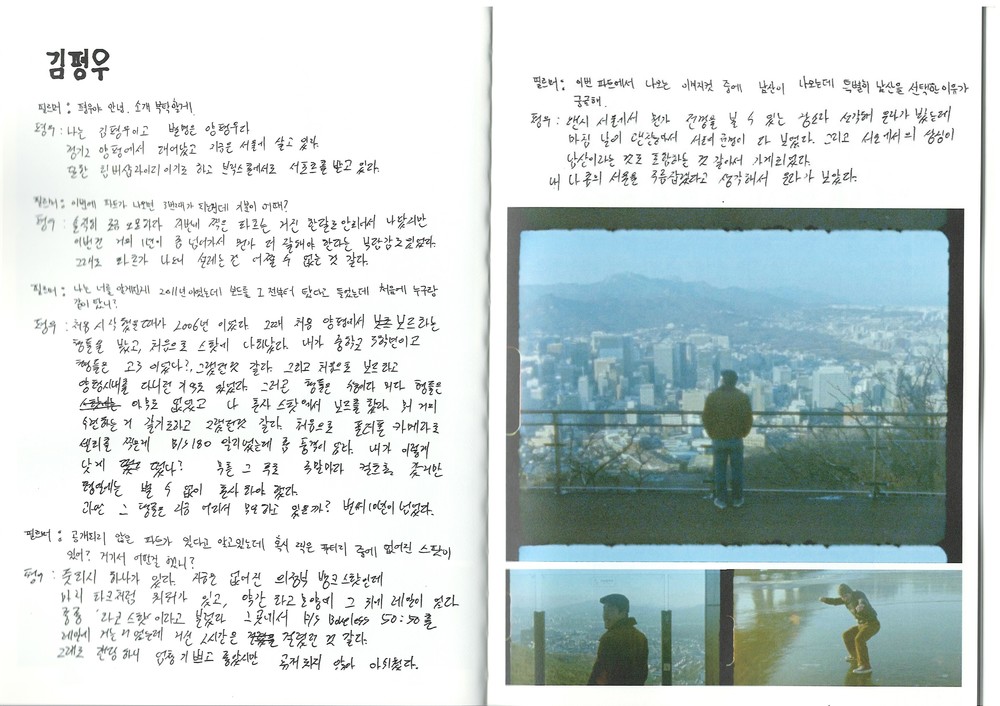 김평우
필르머 : 평우야 안녕. 소개 부탁할게.
평우 : 나는 김평우이고 별명은 양평우다
경기도 양평에서 태어났고 지금은 서울에 살고 있다.
또한 립버샵라이더이기도 하고 브릭스톨에서도 서포트를 받고 있다.
필르머 : 이번에 파트가 나오면 3번째가 되는데 기분이 어때?
평우 : 솔직히 조금 오묘하다 저번에 찍은 파트는 거진 한달도 안되어서 나왔지만
이번건 거의 1년이 좀 넘어가서 뭔가 더 잘해야 한다는 부담감도 있었다.
그래도 파트가 나오니 설레는건 어쩔 수 없는 것 같다.
필르머 : 나는 너를 알게된게 2011년이었는데 보드를 그 전부터 탔다고 들었는데 처음에 누구랑
같이 탔니?
평우 : 처음 시작 했을때가 2006년 이었다 그때 처음 양평에서 보드타는
형들을 봤고, 처음으로 스팟에 나와봤다. 내가 중학교 3학년이고
형들은 고3 이었나?, 그랬던것 같다 그리고 처음으로 보드타고
양평시내를 다니던 기억도 있었다. 그러곤 형들은 수능이다 뭐다 형들은
아무도 없었고 나 혼자 스팟에서 보드를 탔다. 뭐 거의
수련하는 거 같기도하고 그랬던것 같다. 처음으로 폴더폰 카메라로
셀피를 찍은게 B/S 180 알리였는데 좀 충격이 컸다. 내가 이렇게
낮게 떴다?
평우에는 별 수 없이 혼자 타야 했다.
과연 그 형들은 지금 어디서 무얼 하고 있을까? 벌써 10년이 넘었다.
필르머 : 공개되지 않은 파트가 있다고 알고있는데 혹시 찍은 푸티지 중에 없어진 스팟이
있어? 거기서 어떤걸 했니?
평우 : 뜻밖에 하나가 있다. 지금은 없어진 의정부 뱅크스팟인데
마치 파크처럼 쿼터가 있고, 약간 타고 논다음에 그 위에 레일이 있다
종종 '타코 스팟'이라고 불렀다 그곳에서 B/S Boneless 50:50를
레일에 거는게 있는데 거진 1시간은 걸렸던 것 같다.
그래도 랜딩 하니 엄청 기쁘고 좋았지만 공개 되지 않아 아쉬웠다.
필르머 : 이번 파트에서 나오는 이미지컷 중에 남산이 나오는데 특별히 남산을 선택한 이유가
궁금해.
평우 : 역시 서울에서 뭔가 전경을 볼 수 있는 장소라 생각해 올라가 봤는데
마침 날이 괜찮아서 서울 전경이 다 보였다. 그리고 서울에서의 상징이
남산이라는 것도 포함하는 것 같아서 가게되었다.
내 나름의 서울을 주름잡았다고 생각해서 올라가 보았다.